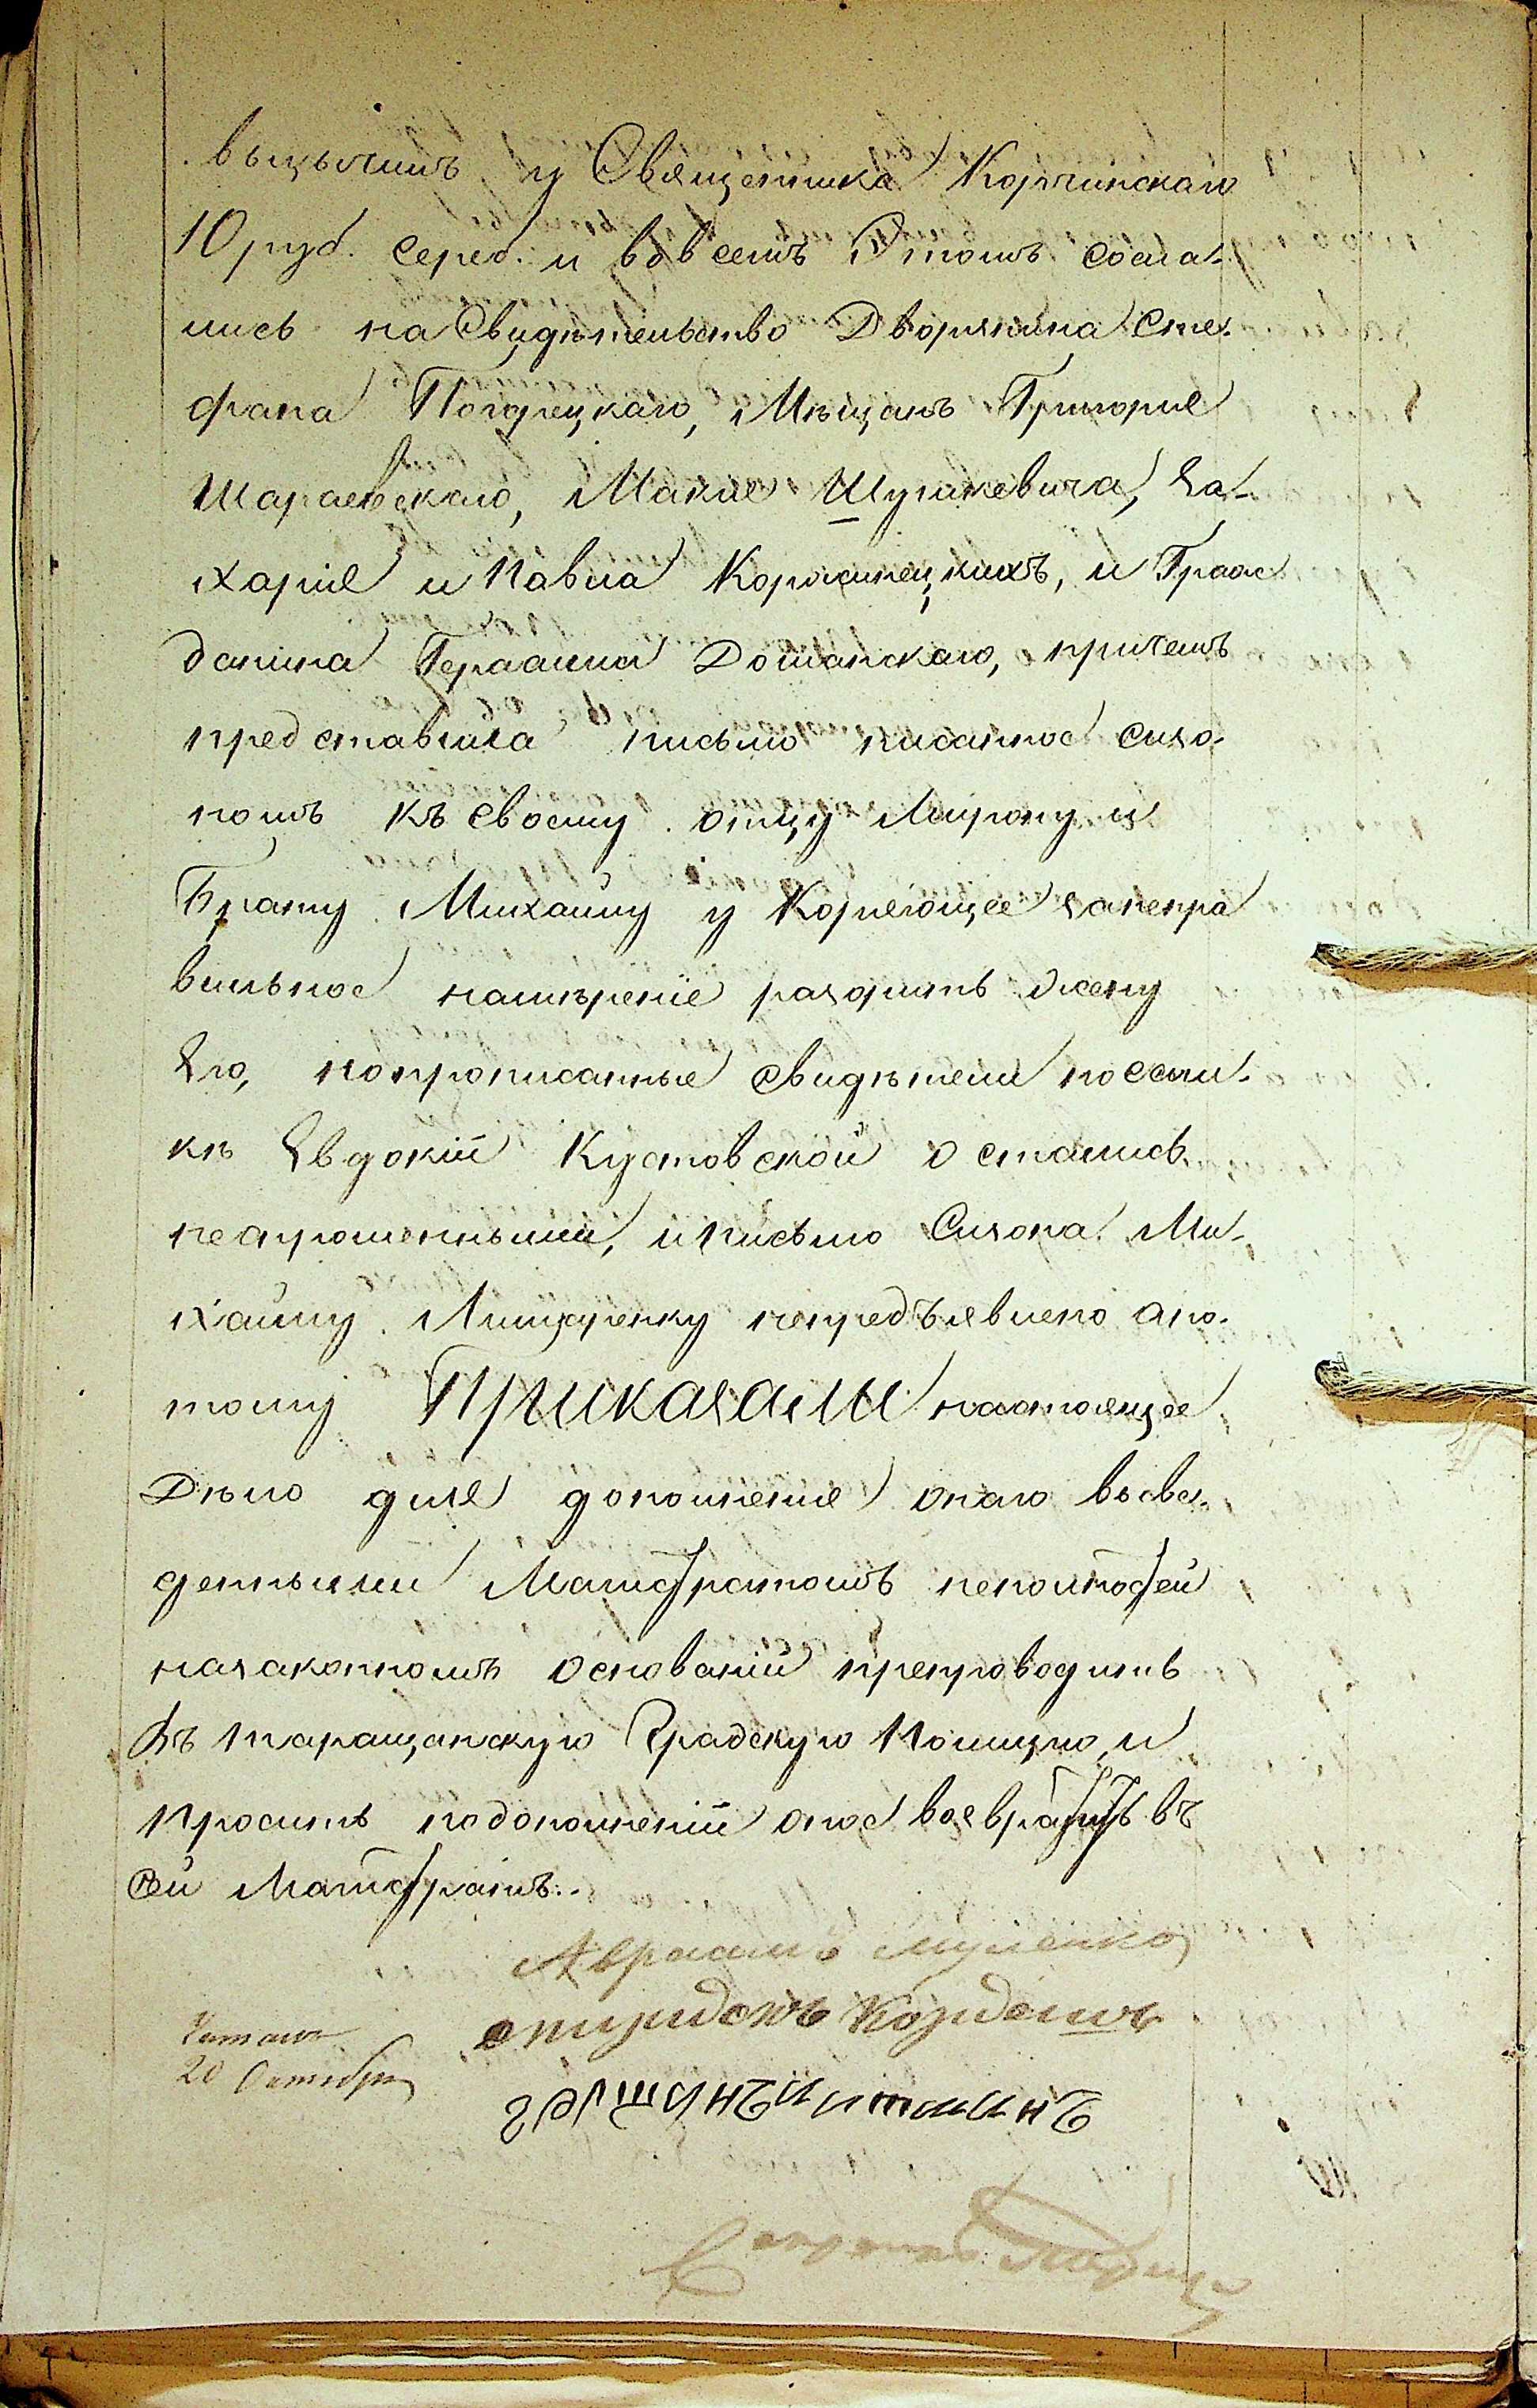 у Священника Корчинскаго
10 руб. сереб. и вовсемъ Этомъ сосла-
лись на Свидѣтельство Дворянина Сте-
фана Погорецкаго, Мѣщанъ Григорія
Шараевскаго, Шулькевича, За-
харія и Павла и Граж
данина Герасима Доманскаго, причемъ
представила письмо писанное Сизо-
номъ къ своему отцу Мирону и
Брату Михайлу укоряющее занепра
вильное намѣреніе разорить жену
Его, нопрописанные свидѣтели поссыл-
кѣ Евдокіи Кустовской остались
неспрошенными, и письмо Сизона Ми-
хайлу непредъявлено апо-
тому Приказали настоящее
Дѣло для дополненія онаго
Магистратомъ
назаконномъ основаніи препроводить
въ Таращанскую Градскую Полицію, и
просить подополненіи оное возвратить въ
сей Магистратъ.
Авраамъ
Спиридонъ
Читалъ
20 Октября